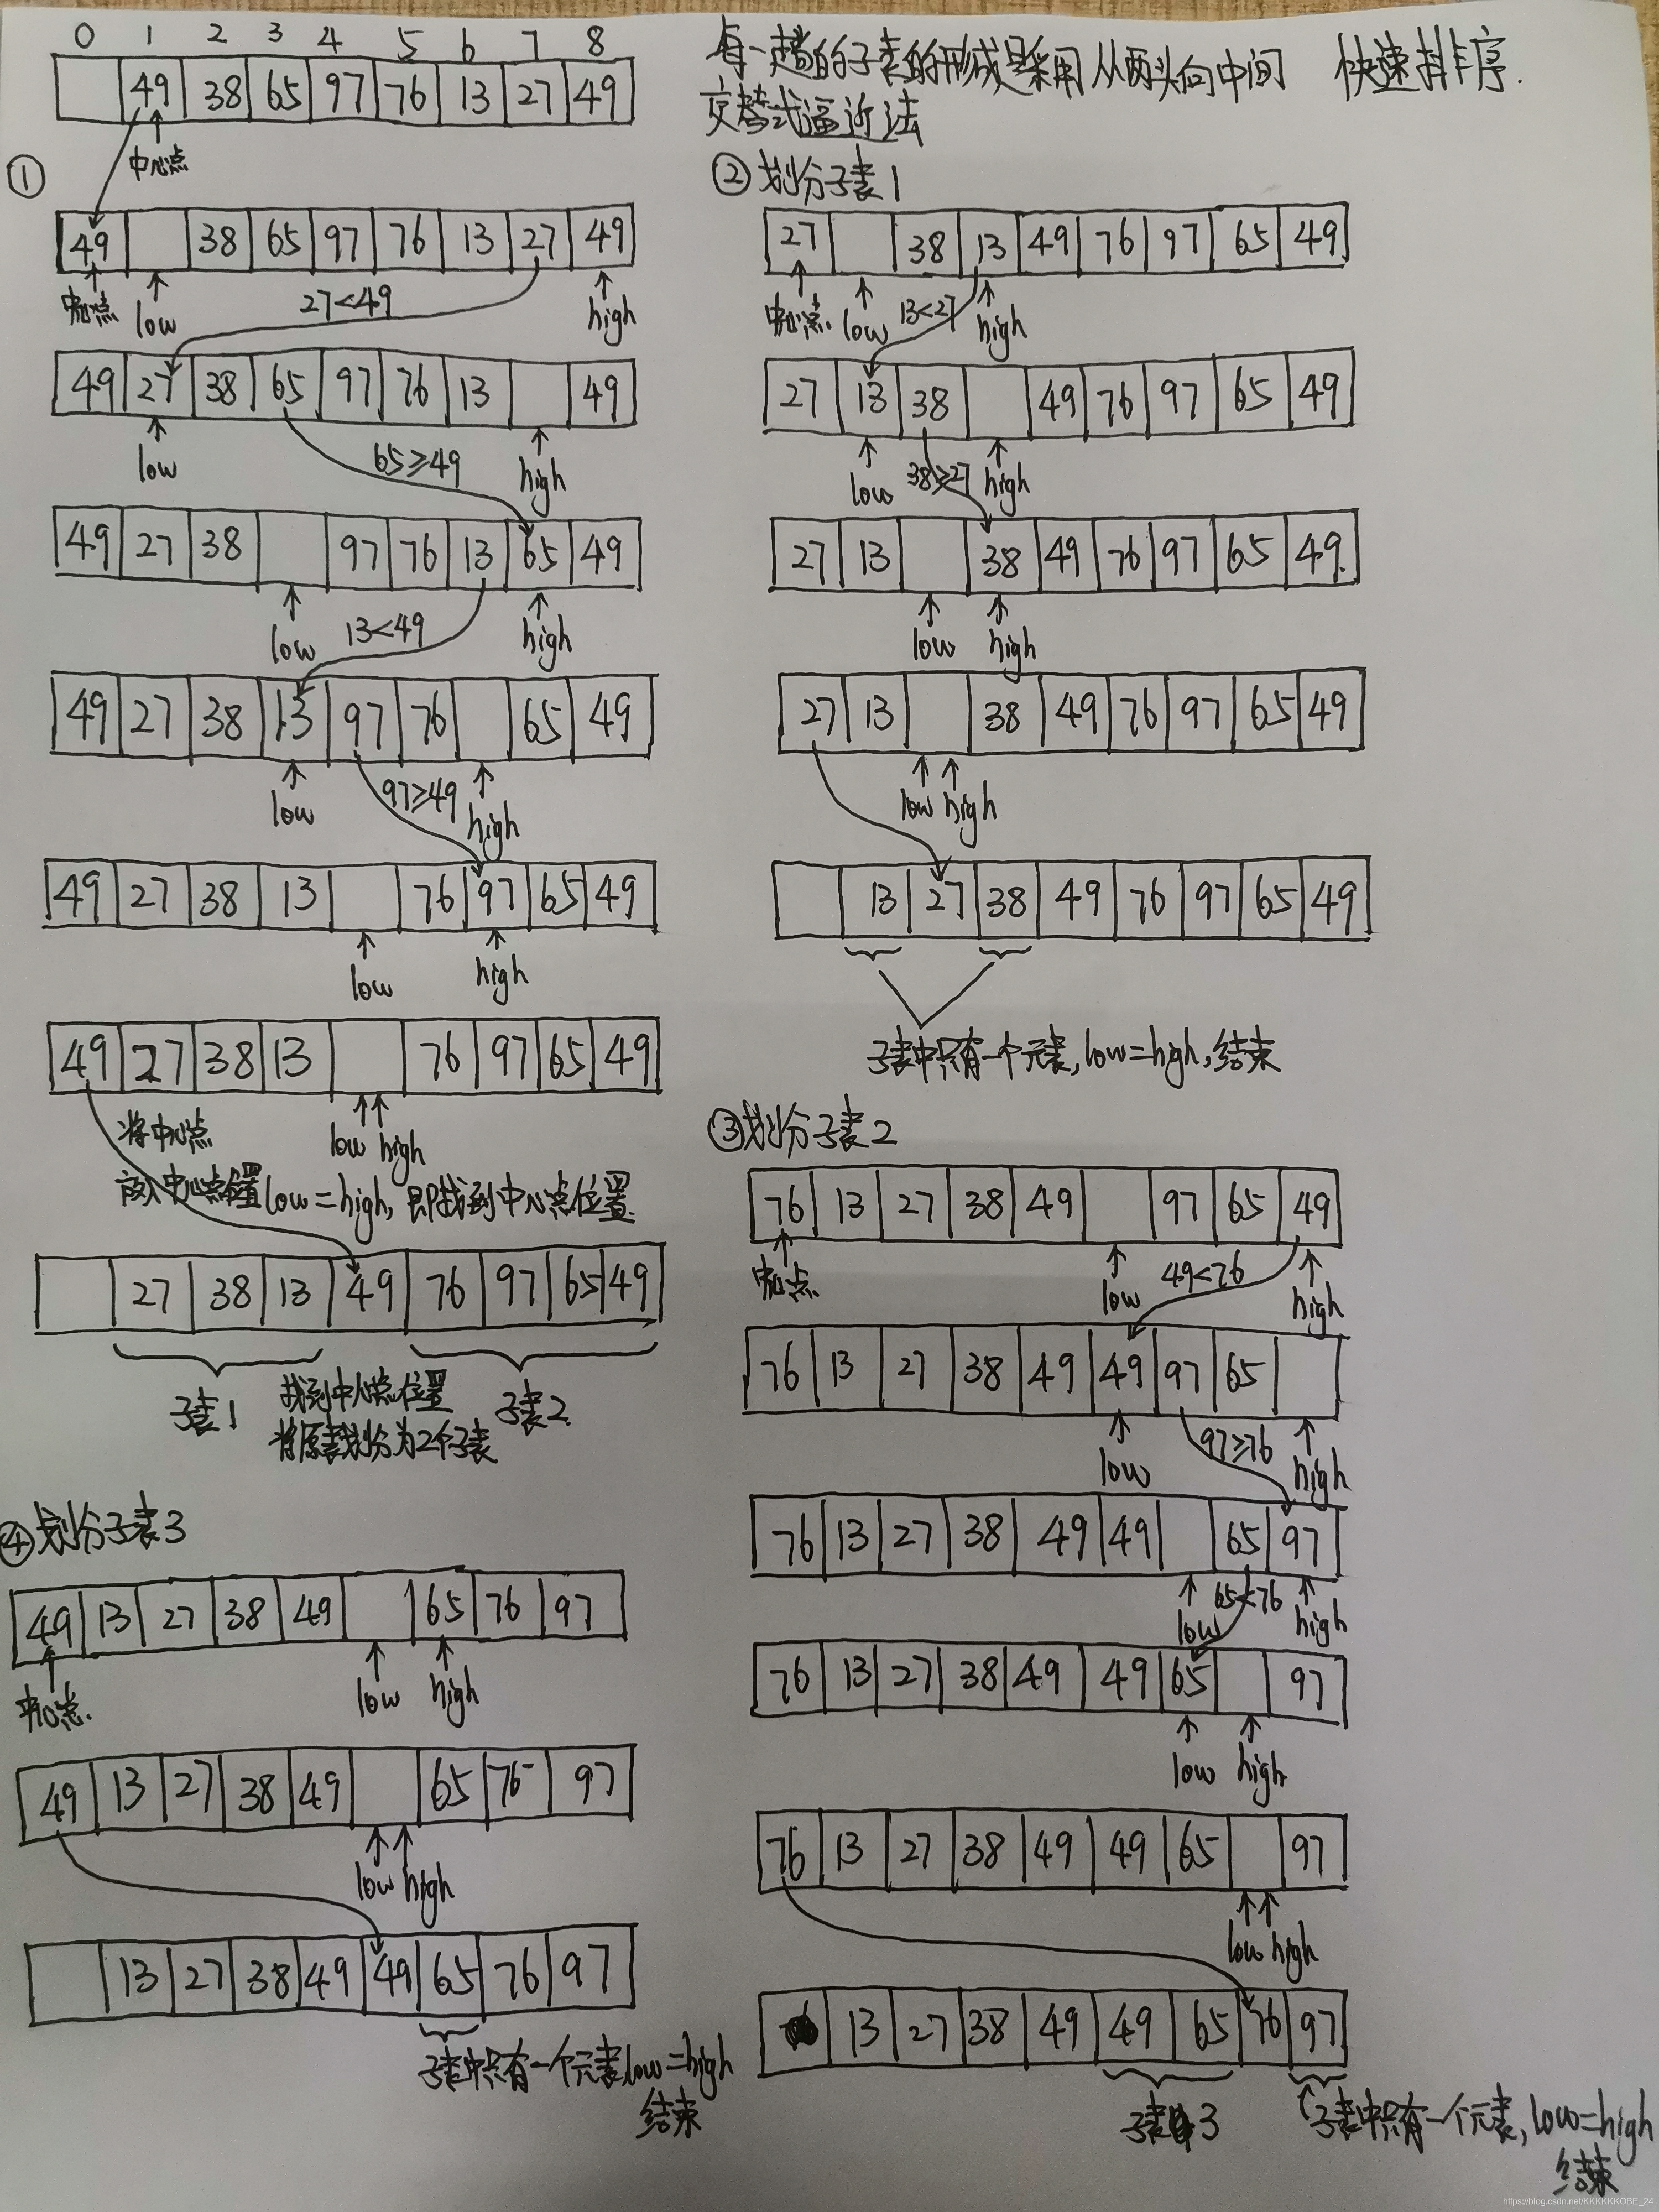 0 1 2 3 4 5 6 7 8
49 38 65 97 76 13 27 49
中心点
①
49 38 65 97 76 13 27 49
中心点 low 27<49 high
49 27 38 65 97 76 13 49
low 65≥49 high
49 27 38 97 76 13 65 49
low 13<49 high
49 27 38 13 97 76 65 49
low 97≥49 high
49 27 38 13 76 97 65 49
low high
49 27 38 13 76 97 65 49
将中心点 low high
放入中心点位置 low=high, 即找到中心点位置
27 38 13 49 76 97 65 49
子表1 找到中心点位置 子表2
将原表划分为2个子表
④划分子表3
49 13 27 38 49 65 76 97
中心点. low high
49 13 27 38 49 65 76 97
low high
13 27 38 49 49 65 76 97
子表中只有一个元素,low=high
结束
每一趟的子表的形成是采用从两头向中间 快速排序.
交替式逼近法
②划分子表1
27 38 13 49 76 97 65 49
中心点. low 13<27 high
27 13 38 49 76 97 65 49
low 38≥27 high
27 13 38 49 76 97 65 49.
low high
27 13 38 49 76 97 65 49
low high
13 27 38 49 76 97 65 49
子表中只有一个元素,low=high,结束
③划分子表2
76 13 27 38 49 97 65 49
中心点. low 49<76 high
76 13 27 38 49 49 97 65
low 97≥76 high
76 13 27 38 49 49 65 97
low 65<76 high
76 13 27 38 49 49 65 97
low high
76 13 27 38 49 49 65 97
low high
13 27 38 49 49 65 76 97
子表3 子表中只有一个元素,low=high
结束
https://blog.csdn.net/KKKKKKOBE_24